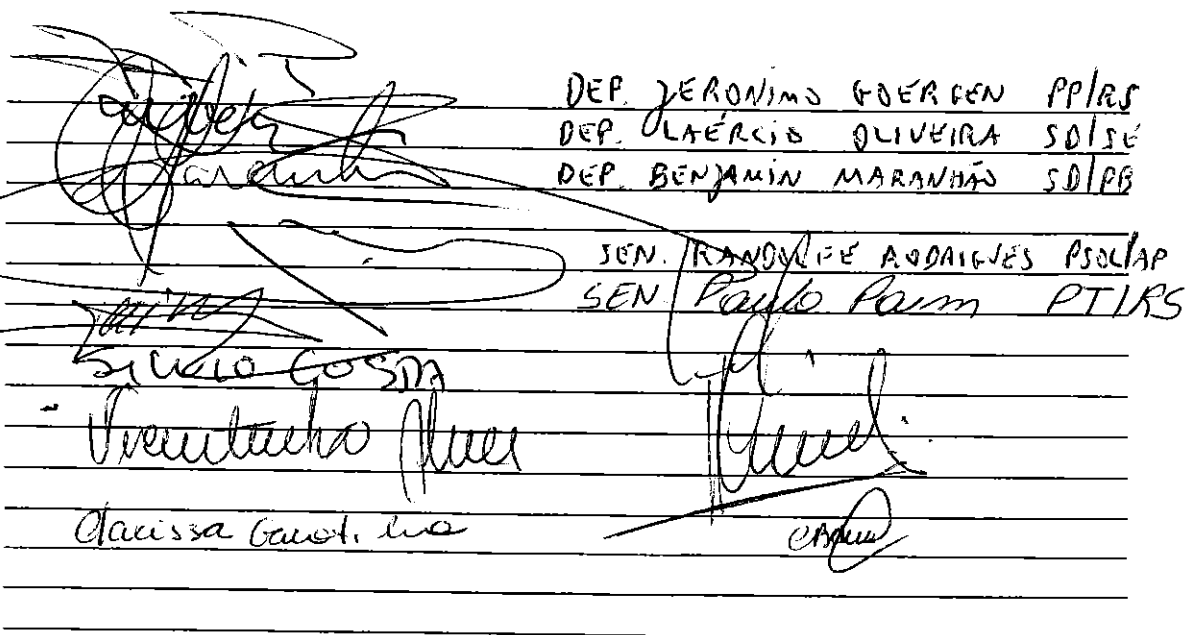 DEP. JERONIMO GOERGEN PP/RS
DEP. LAÉRCIO OLIVEIRA SD/SE
DEP. BENJAMIN MARANHÃO SD/PB
SEN. RANDOLFE RODRIGUES PSOL/AP
SEN Paulo Paim PT/RS
SILVIO COSTA
Vicentinho Alves
Clarissa Garotinho